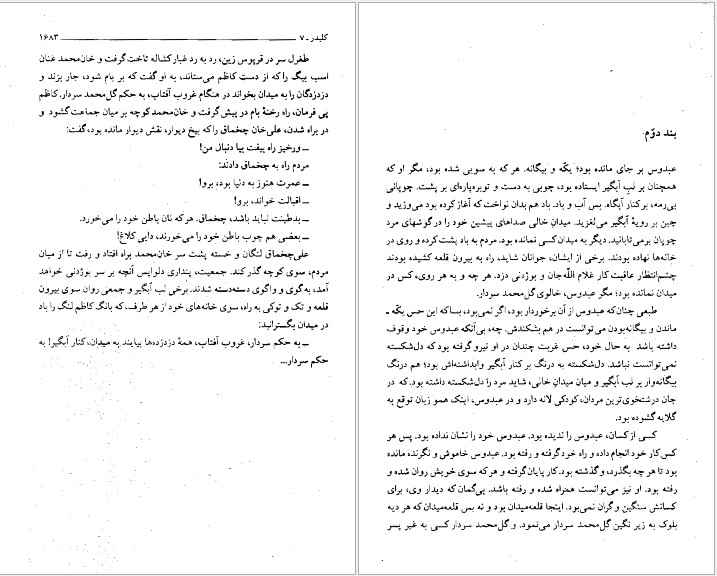 کلیدر ـ ۷ ــــــــــ ۱۶۸۳
طغرل سر در قرپوس زین، رد به رد غبار کشاله تاخت گرفت و خان‌محمد عنان
اسب بیگ را که از دست کاظم می‌ستاند، به او گفت که بر بام شود، جار بزند و
دزدزدگان را به میدان بخواند در هنگام غروب آفتاب، به حکم گل‌محمد سردار. کاظم
پی فرمان، راه رخنهٔ بام در پیش گرفت و خان‌محمد کوچه بر میان جماعت گشود و
در براه شدن، علی‌خان چخماق را که بیخ دیوار، نقش دیوار مانده بود، گفت:
ـ ورخیز راه بیفت بیا دنبال من!
مردم راه به چخماق دادند:
ـ عمرت هنوز به دنیا بود، برو!
ـ اقبالت خواند، برو!
ـ بدطینت نباید باشد، چخماق. هر که نان باطن خود را می‌خورد.
ـ بعضی هم چوب باطن خود را می‌خورند، دایی کلاغ!
علی‌چخماق لنگان و خسته پشت سر خان‌محمد براه افتاد و رفت تا از میان
مردم، سوی کوچه گذر کند. جمعیت، پنداری دلواپس آنچه بر سر بوژدنی خواهد
آمد، به گوی و واگوی دسته‌دسته شدند. برخی لب آبگیر و جمعی روان سوی بیرون
قلعه و تک و توکی به راه، سوی خانه‌های خود از هر طرف، که بانگ کاظم لنگ را باد
در میدان بگسترانید:
ـ به حکم سردار، غروب آفتاب، همهٔ دزدزده‌ها بیایند به میدان، کنار آبگیر! به
حکم سردار...
بند دوّم.
عبدوس بر جای مانده بود؛ یکّه و بیگانه. هر که به سویی شده بود، مگر او که
همچنان بر لب آبگیر ایستاده بود، چوبی به دست و توبره‌پاره‌ای بر پشت. چوپانی
بی‌رمه، بر کنار آبگاه. پس آب و باد. باد هم بدان نواخت که آغاز کرده بود می‌وزید و
چین بر رویهٔ آبگیر می‌لغزید. میدانِ خالی صداهای پیشین خود را در گوشهای مرد
چوپان برمی‌تابانید. دیگر به میدان کسی نمانده بود. مردم به باد پشت کرده و روی در
خانه‌ها نهاده بودند. برخی از ایشان، جوانان شاید، راه به بیرون قلعه کشیده بودند
چشم‌انتظار عاقبت کار غلام اللّه‌جان و بوژدنی دزد. هر چه و به هر روی، کس در
میدان نمانده بود؛ مگر عبدوس، خالوی گل‌محمد سردار.
طبعی چنان که عبدوس از آن برخوردار بود، اگر نمی‌بود، بسا که این حس یکّه ـ
ماندن و بیگانه‌بودن می‌توانست در هم بشکندش. چه، بی‌آنکه عبدوس خود وقوف
داشته باشد به حال خود، حس غربت چندان در او نیرو گرفته بود که دل‌شکسته
نمی‌توانست نباشد. دل‌شکسته به درنگ بر کنار آبگیر وابداشته‌اش بود؛ هم درنگ
بیگانه‌وار بر لب آبگیر و میان میدان خالی، شاید مرد را دل‌شکسته داشته بود. که در
جان درشتخوی‌ترین مردان، کودکی لانه دارد و در عبدوس، اینک همو زبان توقع به
گلایه گشوده بود.
کسی از کسان، عبدوس را ندیده بود. عبدوس خود را نشان نداده بود. پس هر
کس کار خود انجام داده و راه خود گرفته و رفته بود. عبدوس خاموش و نگرنده مانده
بود تا هر چه بگذرد، و گذشته بود. کار پایان گرفته و هر که سوی خویش روان شده و
رفته بود. او نیز می‌توانست همراه شده و رفته باشد. بی‌گمان که دیدار وی، برای
کسانش سنگین و گران نمی‌بود. اینجا قلعه‌میدان بود و نه بس قلعه‌میدان که هر دیه
بلوک به زیر نگین گل‌محمد سردار می‌نمود. و گل‌محمد سردار کسی به غیر پسر